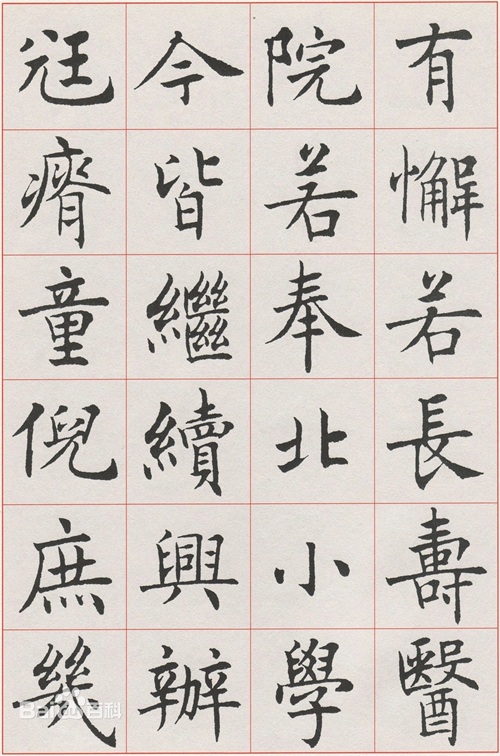 有懈若長壽醫
院若奉北小學
今皆繼續興辦
尪瘠童倪庶幾
Baidu百科